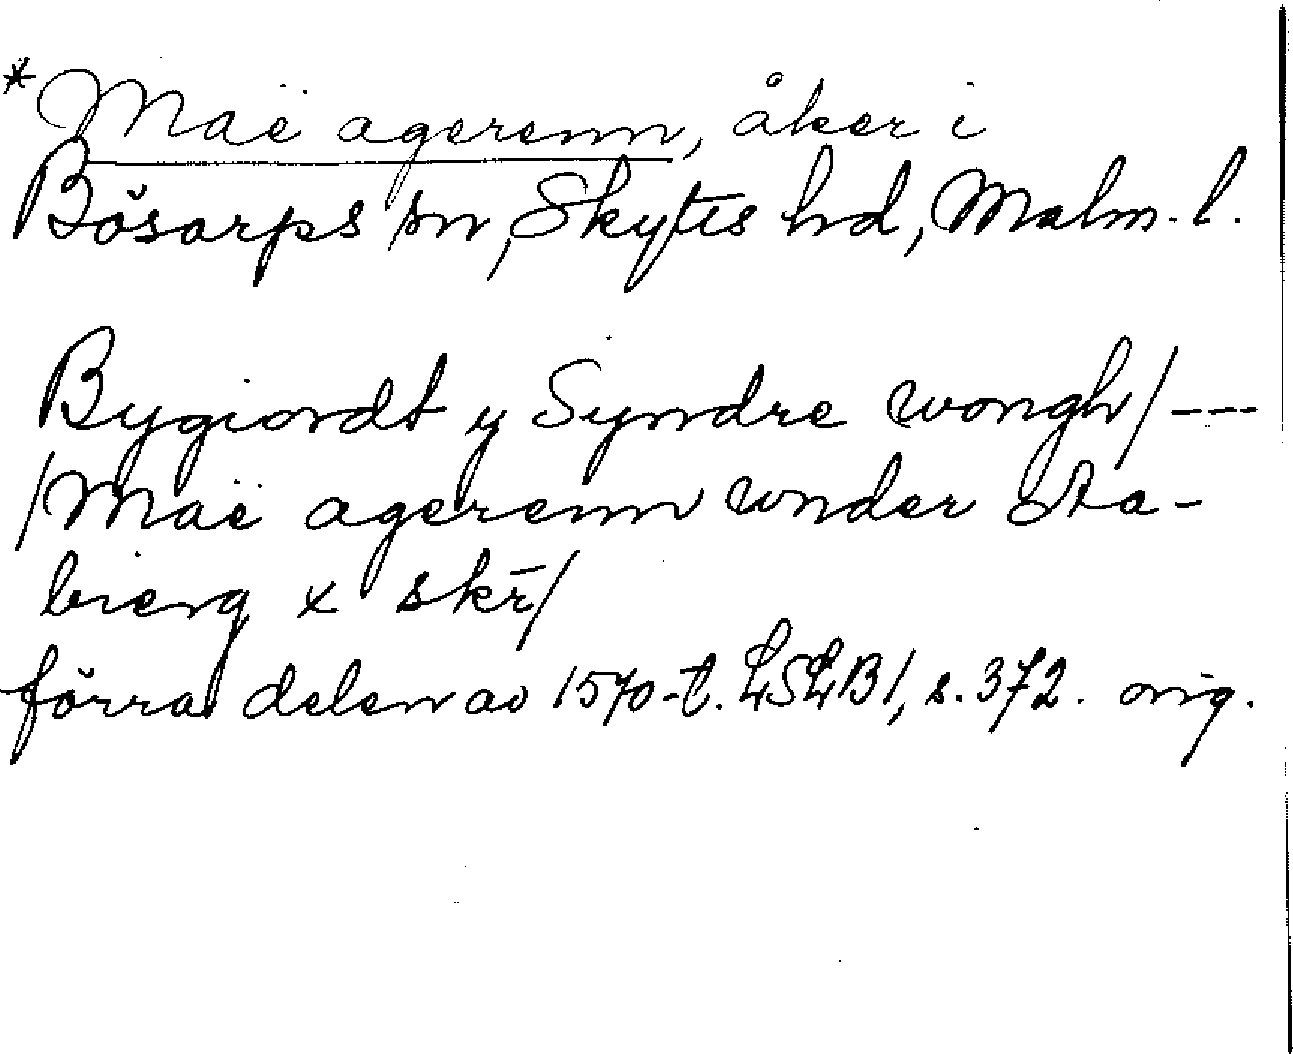 *Maë agerenn, åker i
Bösarps sn, Skytts hd, Malm. l.
Bygiordt y Syndre wongh/ ---
/Maë agerenn wnder Sta-
bierg x skr̄/
förra delen av 1570-t. LSLB1, s. 372. orig.